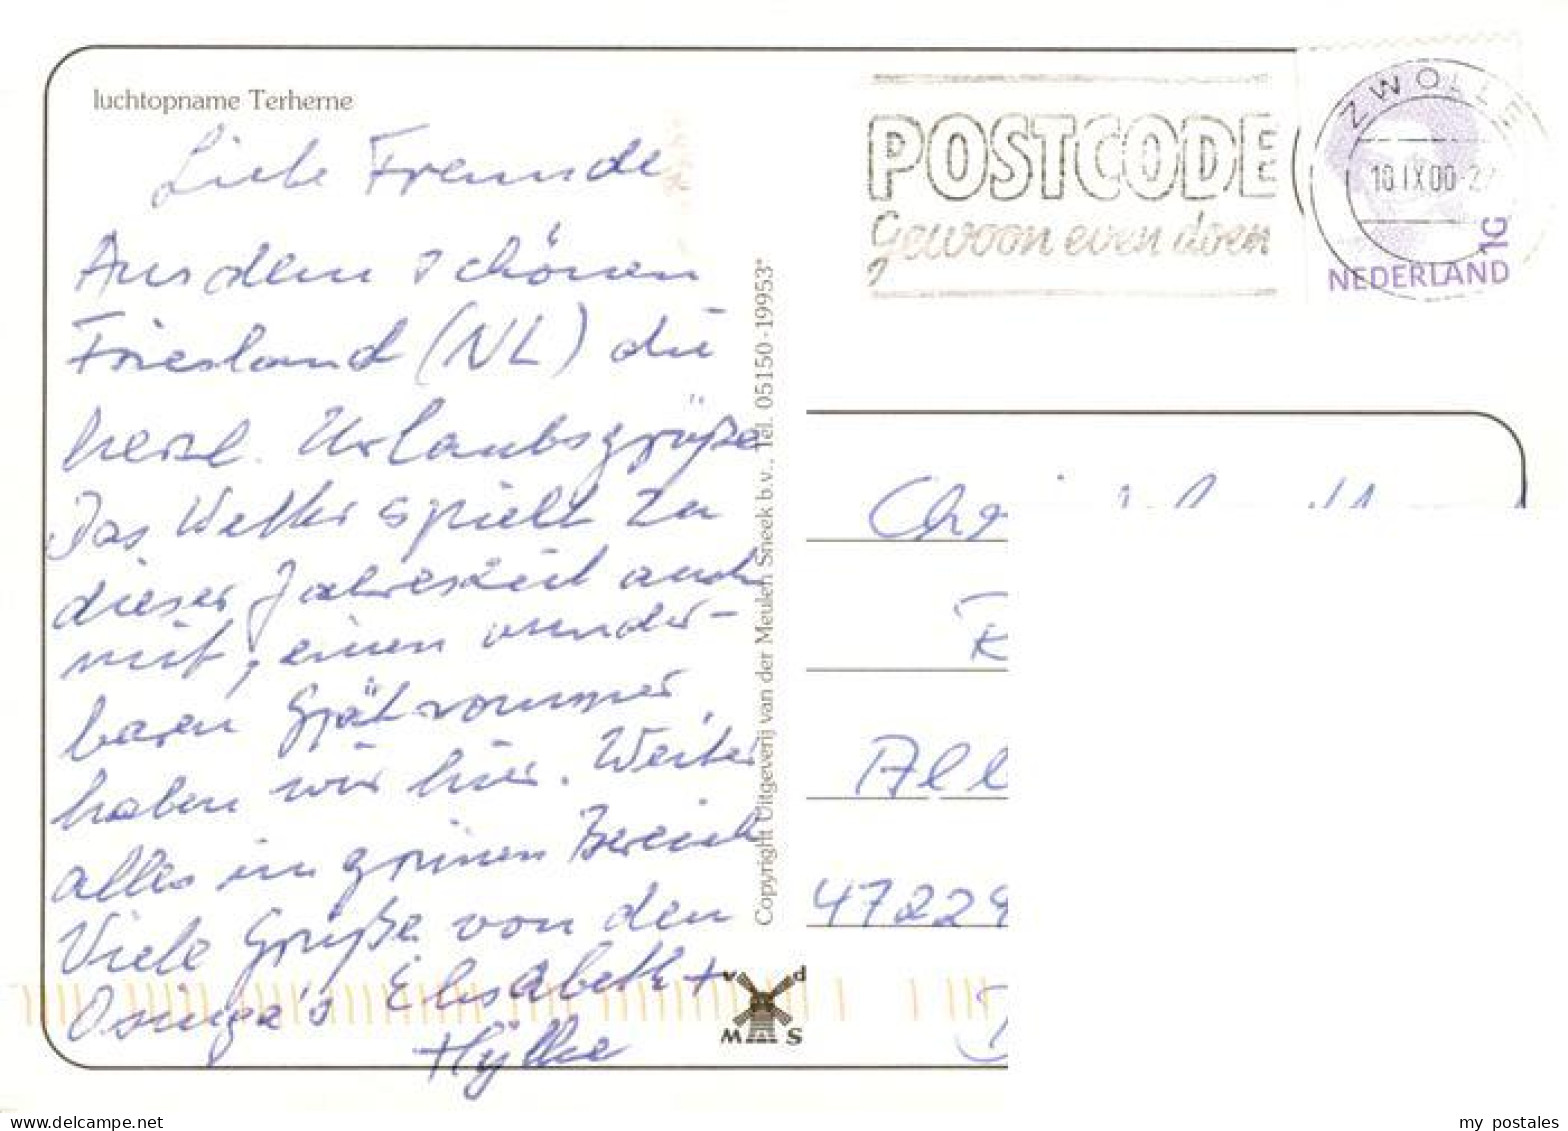 luchtopname Terherne
Liebe Freunde
Aus dem schönen
Friesland (NL) die
herzl. Urlaubsgrüße
Das Wetter spielt zu
dieser Jahreszeit auch
mit, einen wunder-
baren Spätsommer
haben wir hier. Weiter
alles im grünen Bereich
Viele Grüße von den
Osinga's Elisabeth +
Hylke
Copyright Uitgeverij van der Meulen Sneek b.v., Tel. 05150-19953*
v d
M S
POSTCODE
Gewoon even doen
ZWOLLE
10 IX 00
1G
NEDERLAND
47224
my postales